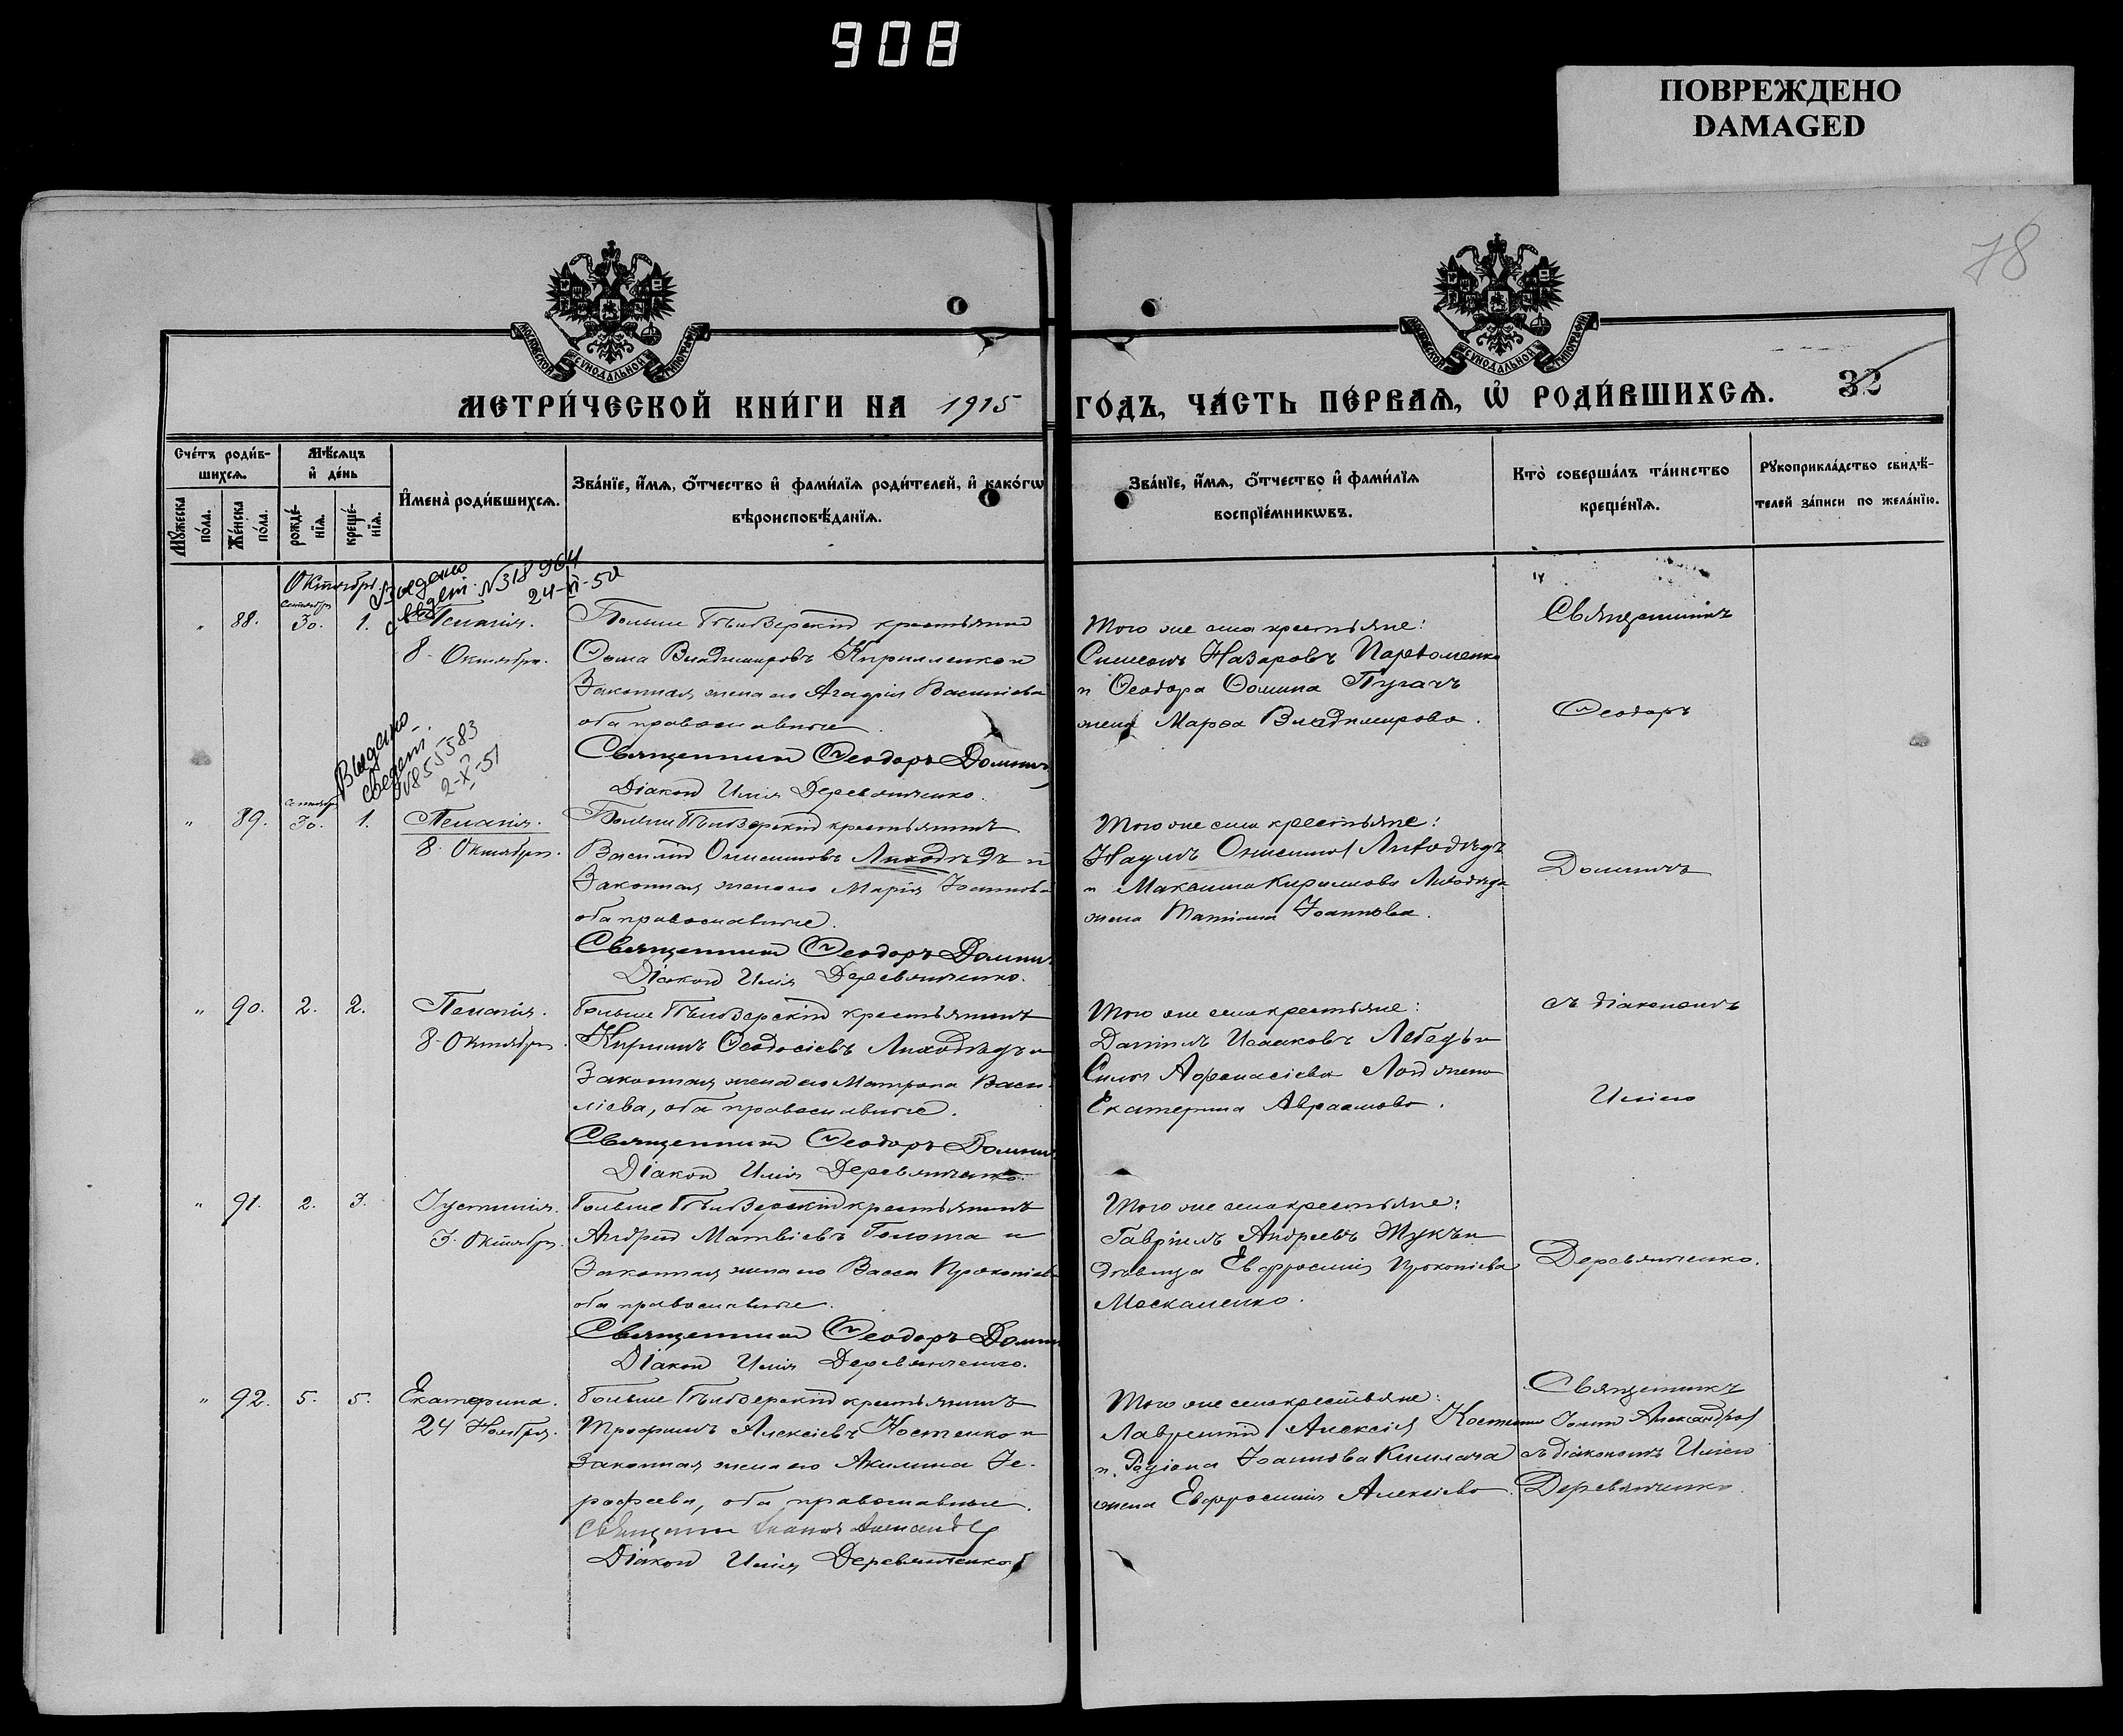 908
ПОВРЕЖДЕНО
DAMAGED
78
МОСКОВСКОЙ СѴНОДАЛЬНОЙ ТИПОГРАФІИ
МОСКОВСКОЙ СѴНОДАЛЬНОЙ ТИПОГРАФІИ
МЕТРИ́ЧЕСКОЙ КНИ́ГИ НА 1915 ГО́ДЪ, ЧА́СТЬ ПЕ́РВАѦ, Ѡ҆ РОДИ́ВШИХСѦ. 32
Сче́тъ роди́в-
шихсѧ.
Мꙋ́жеска по́ла.
Же́нска по́ла.
Мѣ́сѧцъ
и҆ де́нь
рожде́-
нїѧ.
креще́-
нїѧ.
И҆мена̀ роди́вшихсѧ.
Зва́нїе, и҆́мѧ, ѻ҆́тчество и҆ фами́лїѧ роди́телей, и҆ како́гѡ
вѣроисповѣ́данїѧ.
Зва́нїе, и҆́мѧ, ѻ҆́тчество и҆ фами́лїѧ
воспрїе́мникѡвъ.
Кто̀ соверша́лъ та́инство
креще́нїѧ.
Рꙋкоприкла́дство свидѣ́-
телей за́писи по жела́нїю.
Октябрь
Выдано
свидет. №318964
24-VI-50
" 88. сентября 30. 1. Пелагія.
8 Октября.
Больше Бѣлозерскій крестьянинъ
Ѳома Владимировъ Кирилленко и
Законная жена его Агафія Василіева
оба православные.
Священникъ Ѳеодоръ Домнич
Діаконъ Илія Деревянченко.
Того же села крестьяне:
Симеонъ Назаровъ Пархоменко
и Ѳеодора Ѳомина Пугачъ
жена Марѳа Владимирова.
Священникъ
Ѳеодоръ
Выдано
свидет.
№855583
2-X-51
" 89. сентября 30. 1. Пелагія.
8 Октября.
Больше Бѣлозерскій крестьянинъ
Василій Онисимовъ Лиходѣдъ и
Законная жена его Марія Іоаннова
оба православные.
Священникъ Ѳеодоръ Домнич
Діаконъ Илія Деревянченко.
Того же села крестьяне:
Наумъ Онисимов Лиходѣдъ
и Максима Кириллова Лиходѣда
жена Татіана Іоаннова.
Домничъ
" 90. 2. 2. Пелагія.
8 Октября.
Больше Бѣлозерскій крестьянинъ
Кириллъ Ѳеодосіевъ Лиходѣдъ и
Законная жена его Матрона Васи-
ліева, оба православные.
Священникъ Ѳеодоръ Домнич
Діаконъ Илія Деревянченко.
Того же села крестьяне:
Даніилъ Исааковъ Лебедь и
Силы Аѳанасіева жена
Екатерина Авраамова.
съ діакономъ
Иліею
" 91. 2. 3. Іустинія.
3 Октября.
Больше Бѣлозерскій крестьянинъ
Андрей Матвіевъ Голота и
Законная жена его Васса Прокопіева
оба православные.
Священникъ Ѳеодоръ Домнич
Діаконъ Илія Деревянченко.
Того же села крестьяне:
Гавріилъ Андреевъ Жукъ и
дѣвица Евфросинія Прокопіева
Москаленко.
Деревянченко.
" 92. 5. 5. Екатерина.
24 Ноября.
Больше Бѣлозерскій крестьянинъ
Трофимъ Алексіевъ Костенко и
Законная жена его Акилина Іе-
рофеева, оба православные.
Священникъ Іоаннъ Александров
Діаконъ Илія Деревянченко
Того же села крестьяне:
Лаврентій Алексіев Костенко
и Родіона Іоаннова
жена Евфросинія Алексіева.
Священникъ
Іоаннъ Александров
съ діакономъ Иліею
Деревянченко.